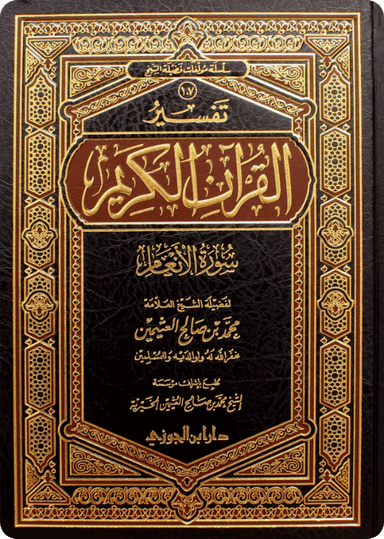 سلسلة مؤلفات فضيلة الشيخ
١٠٧
تفسير
القرآن الكريم
سورة الأنعام
لفضيلة الشيخ العلامة
محمد بن صالح العثيمين
غفر الله له ولوالديه وللمسلمين
طبع بإشراف مؤسسة
الشيخ محمد بن صالح العثيمين الخيرية
دار ابن الجوزي